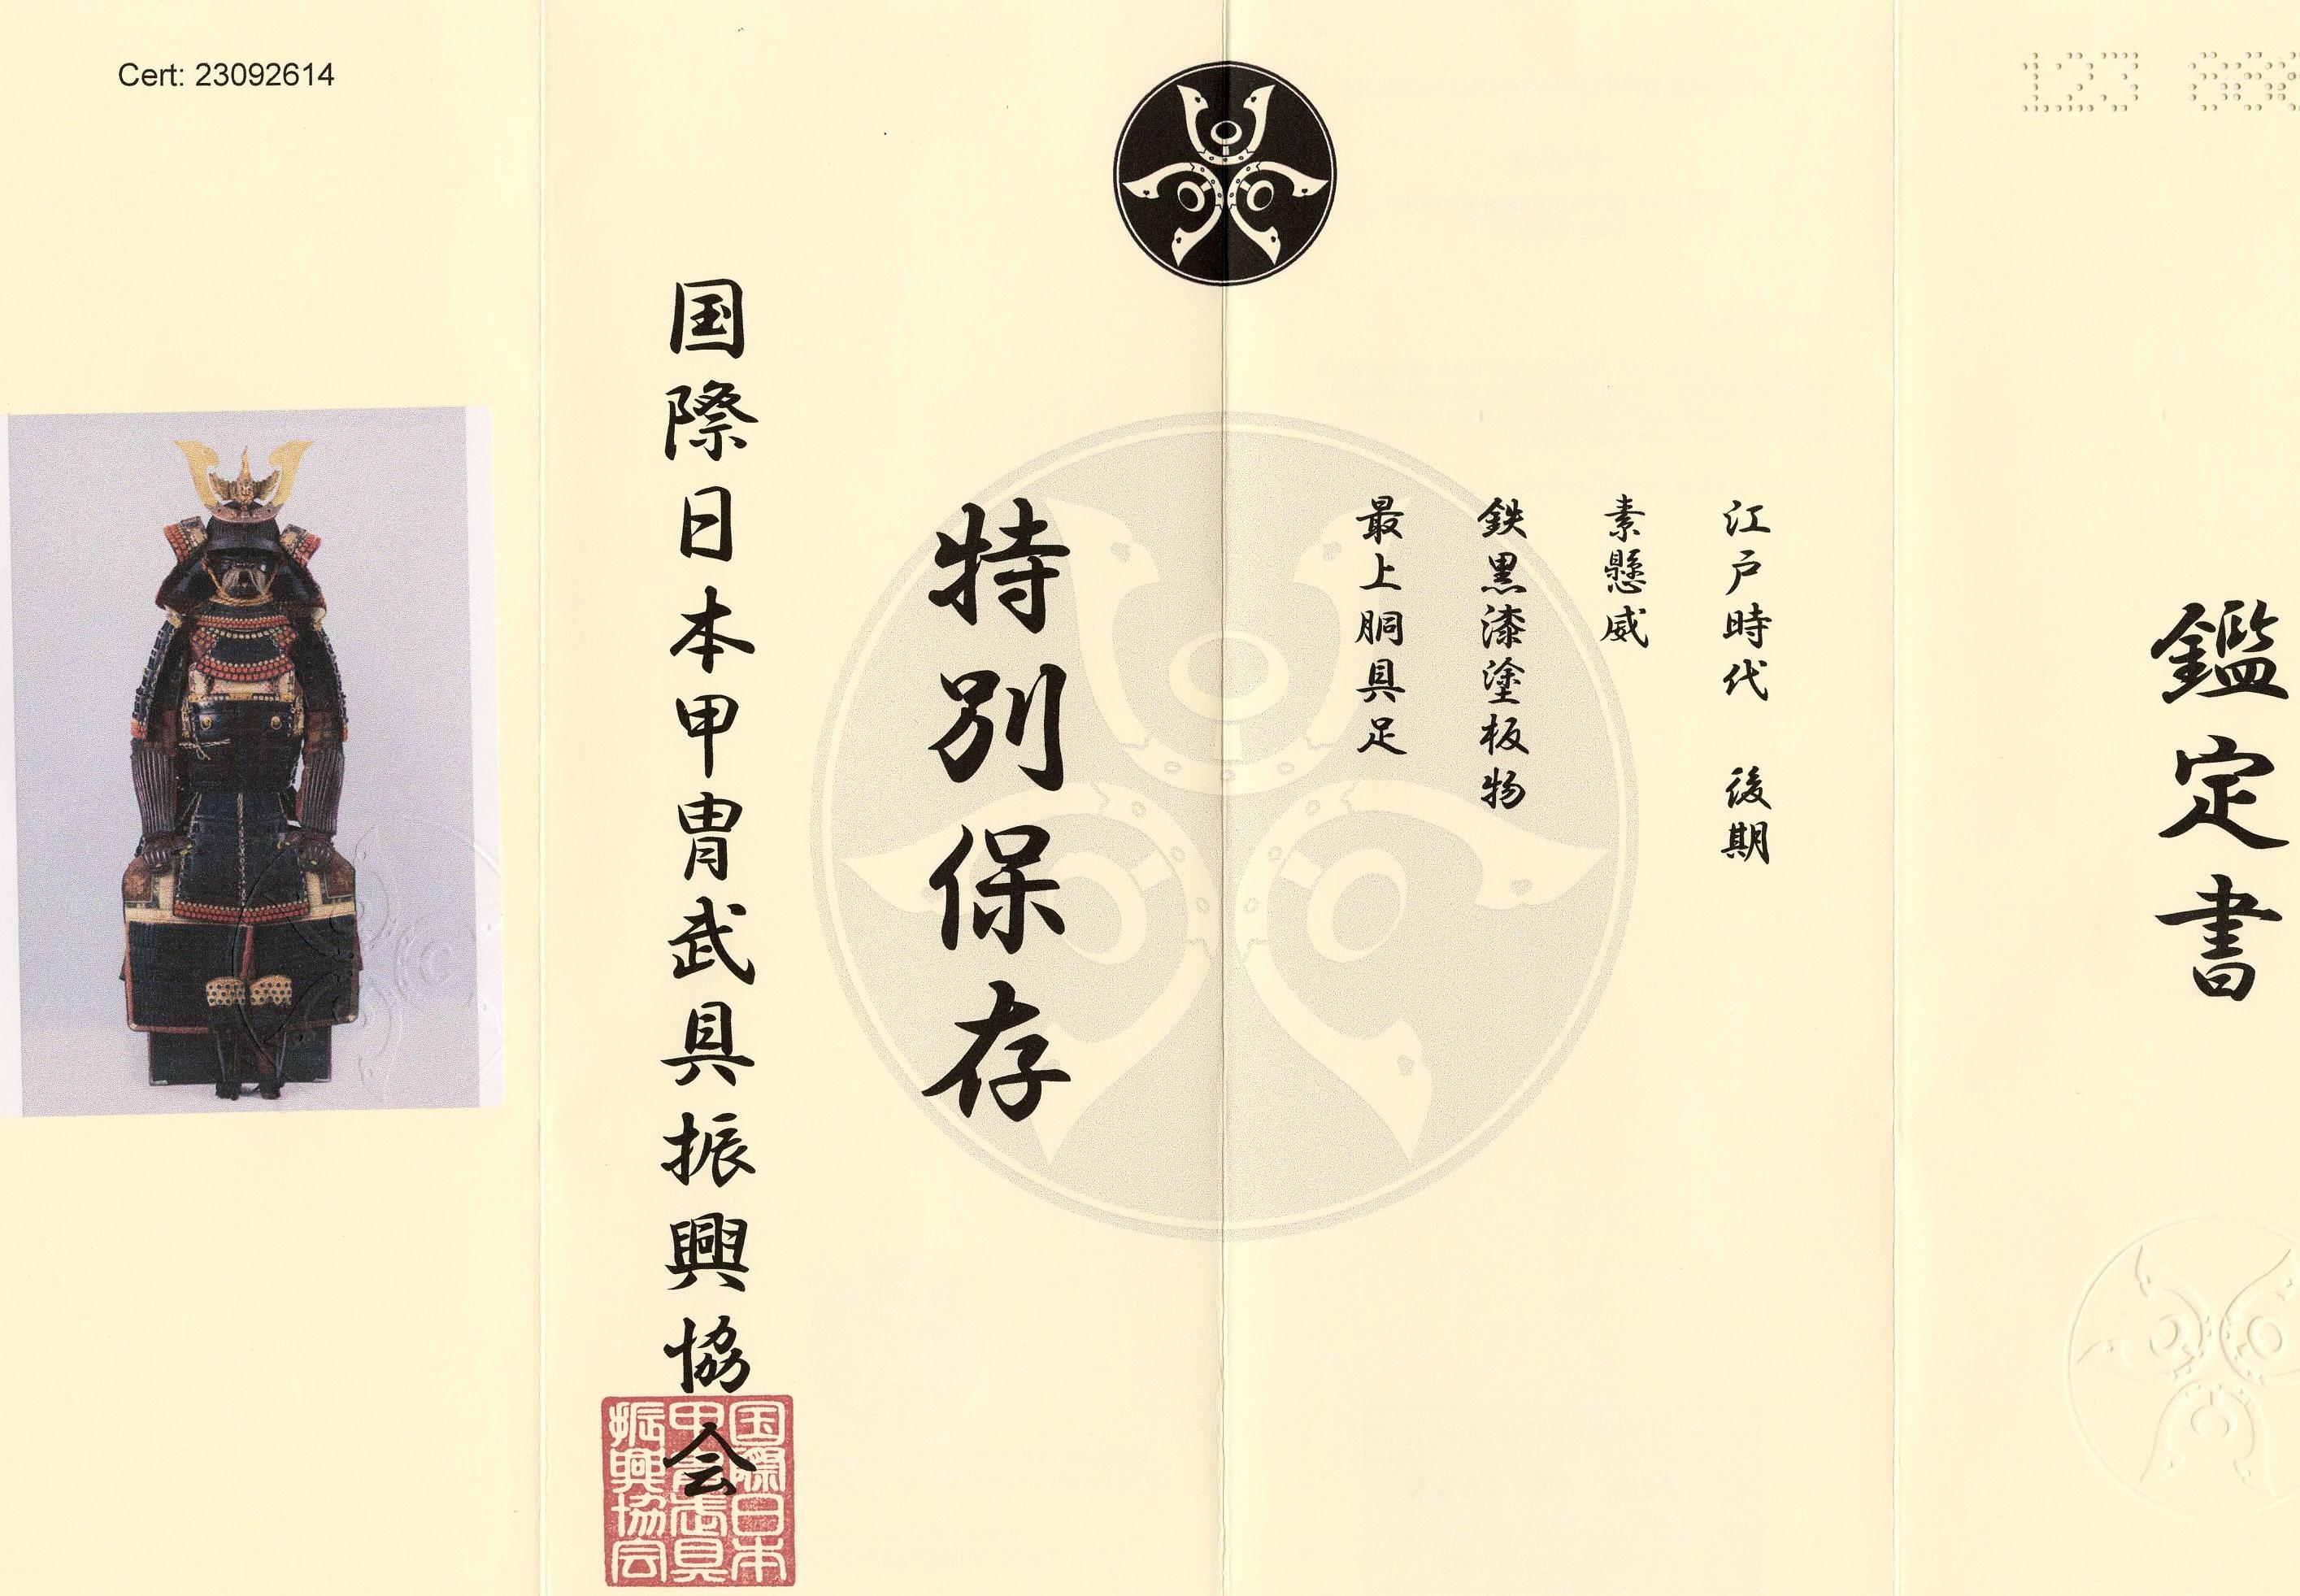 Cert: 23092614
123
鑑定書
江戸時代　後期
素懸威
鉄黒漆塗板物
最上胴具足
特別保存
国際日本甲冑武具振興協会
国際日本
甲冑武具
振興協会